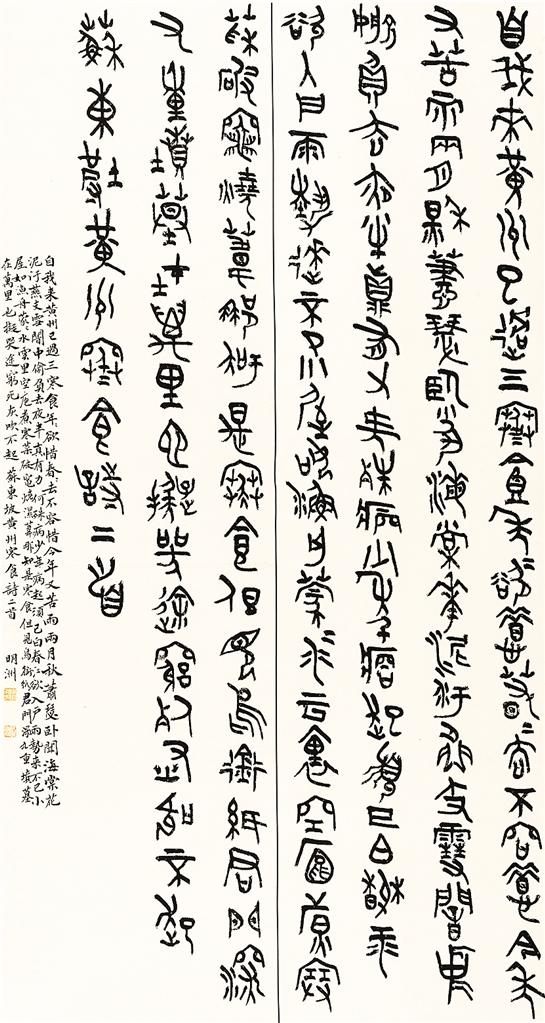 自我來黃州已過三寒食年〻欲惜春〻去不容惜今年
又苦雨兩月秋蕭瑟臥聞海棠花泥汙燕支雪闇中
偷負去夜半真有力何殊病少年病起須已白春江
欲入戶雨勢來不已小屋如漁舟濛〻水雲裏空庖煮寒
菜破竈燒濕葦那知是寒食但見烏銜紙君門深
九重墳墓在萬里也擬哭途窮死灰吹不起
蘇東坡黃州寒食詩二首
自我来黄州已過三寒食年〻欲惜春〻去不容惜今年又苦雨兩月秋蕭瑟卧聞海棠花
泥汙燕支雪闇中偷負去夜半真有力何殊病少年病起須已白春江欲入户雨勢来不已小
屋如漁舟蒙〻水雲里空庖煮寒菜破竈燒濕葦那知是寒食但見烏銜紙君門深九重墳墓
在萬里也擬哭途窮死灰吹不起 蘇東坡黄州寒食詩二首 明洲